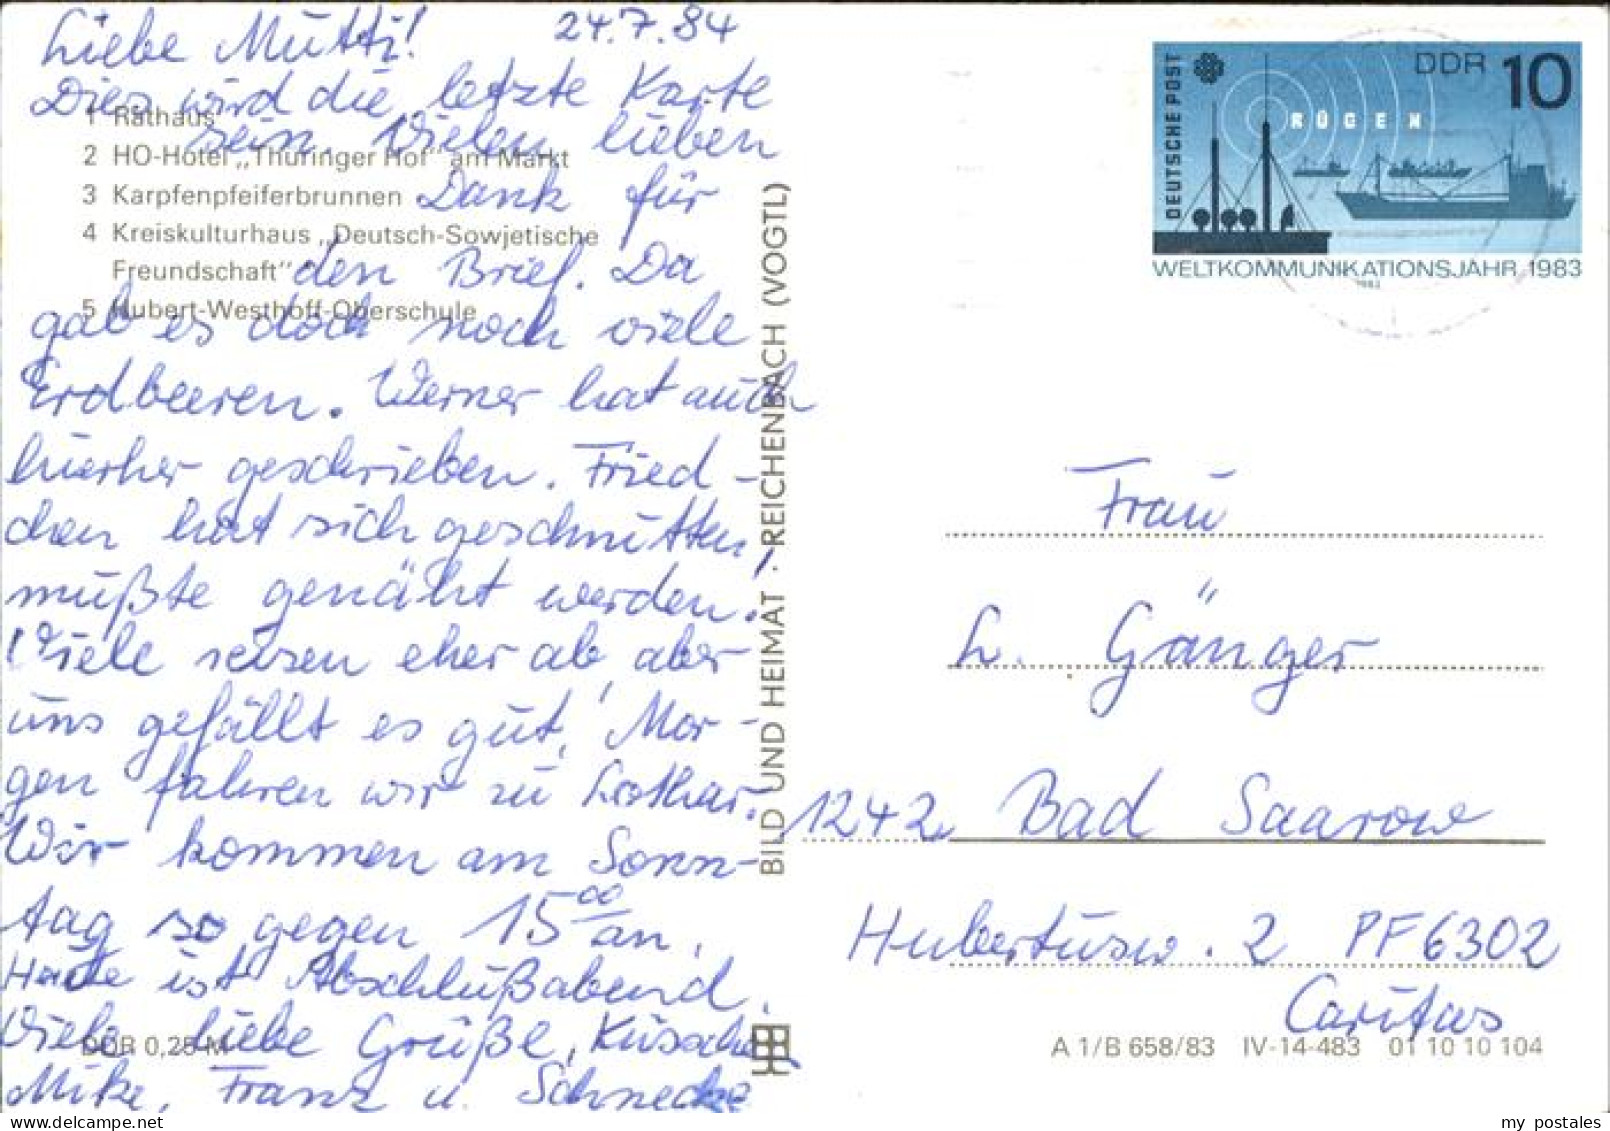 24.7.84
Liebe Mutti!
Dies wird die letzte Karte
sein. Vielen lieben
Dank für
den Brief. Da
gab es doch noch viele
Erdbeeren. Werner hat auch
hierher geschrieben. Fried-
chen hat sich geschnitten,
mußte genäht werden.
Viele reisen eher ab, aber
uns gefällt es gut. Mor-
gen fahren wir zu Lothar.
Wir kommen am Sonn-
tag so gegen 15 00 an.
Heute ist Abschlußabend.
Viele liebe Grüße, Küsschen
Mike, Franz u. Schnecke
1 Rathaus
2 HO-Hotel „Thüringer Hof" am Markt
3 Karpfenpfeiferbrunnen
4 Kreiskulturhaus „Deutsch-Sowjetische
Freundschaft"
5 Hubert-Westhoff-Oberschule
DDR 0,25 M
BILD UND HEIMAT · REICHENBACH (VOGTL)
DEUTSCHE POST
DDR 10
RÜGEN
WELTKOMMUNIKATIONSJAHR 1983
1983
Frau
L. Gänger
1242 Bad Saarow
Hubertusw. 2 PF 6302
Caritas
A 1/B 658/83 IV-14-483 01 10 10 104
my postales